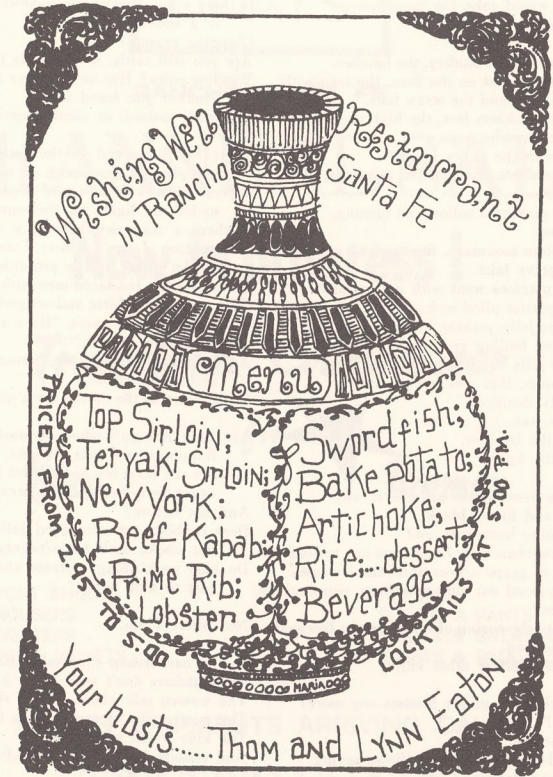 Wishing Well Restaurant
in Rancho Santa Fe
Menu
Top Sirloin;
Teryaki Sirloin;
New York;
Beef Kabab;
Prime Rib;
Lobster
Swordfish;
Bake potato;
Artichoke;
Rice;...dessert,
Beverage
PRICED FROM 2.95 TO 5.00
COCKTAILS AT 5:00 P.M.
MARIA DO
Your hosts......Thom and Lynn Eaton